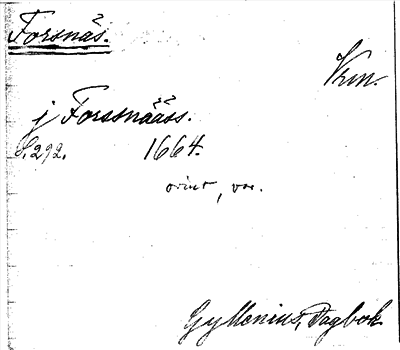 Forsnäs.
Vrm.
j Forssnääss.
S. 292. 1664.
orint, var.
Gyllenius, Dagbok